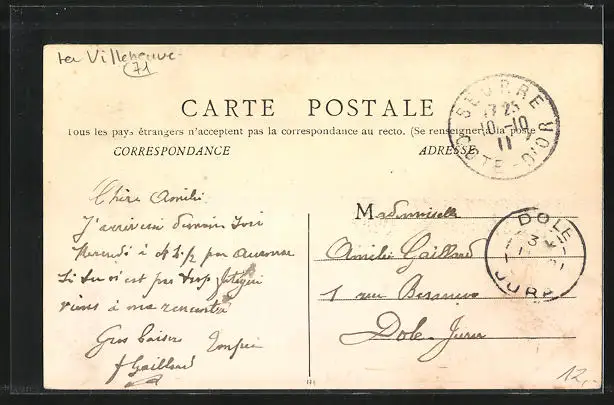 Villeneuve
71
CARTE POSTALE
Tous les pays étrangers n'acceptent pas la correspondance au recto. (Se renseigner à la poste
CORRESPONDANCE
ADRESSE
SEURRE
13 25
10-10
11
COTE-D'OR
DOLE
JURA
Chère Amélie
J'arriverai demain soir
Mercredi à 4 1/2 par Auxonne
Si tu n'est pas trop
viens à ma rencontre
Gros baisers
Gaillard
Mademoiselle
Amélie Gaillard
1 rue Besançon
Dole-Jura
12,-